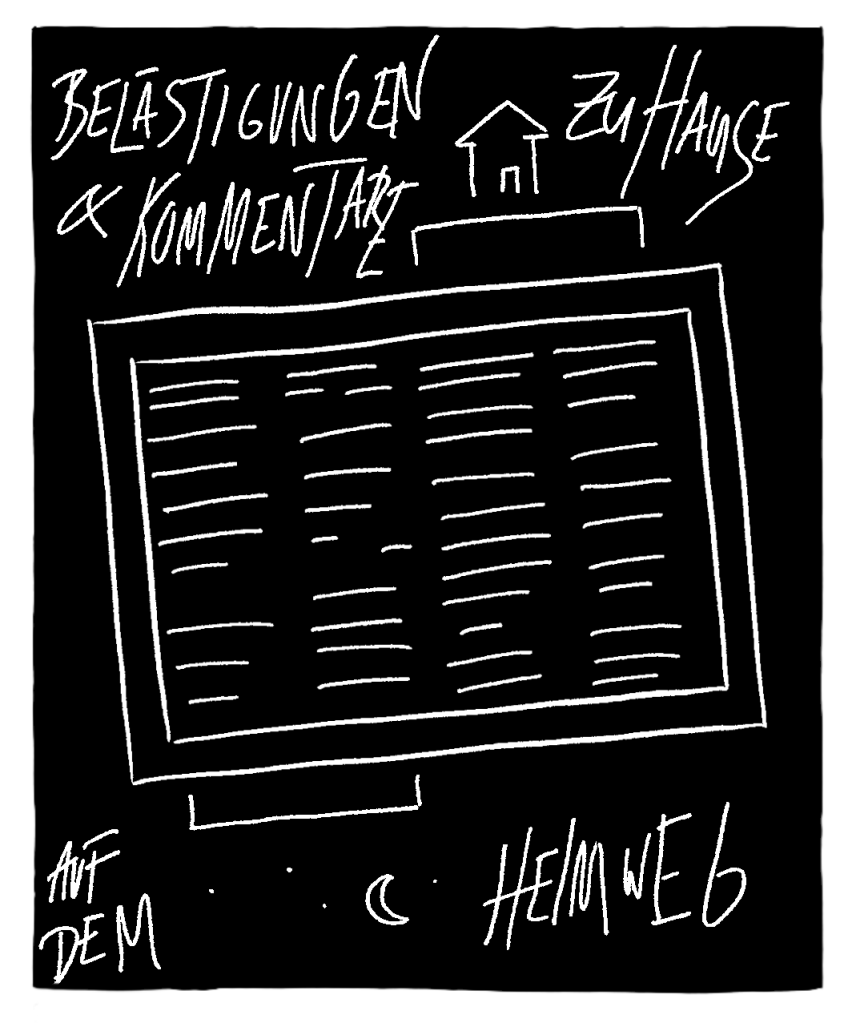 BELÄSTIGUNGEN
& KOMMENTARE
ZUHAUSE
AUF
DEM
HEIMWEG